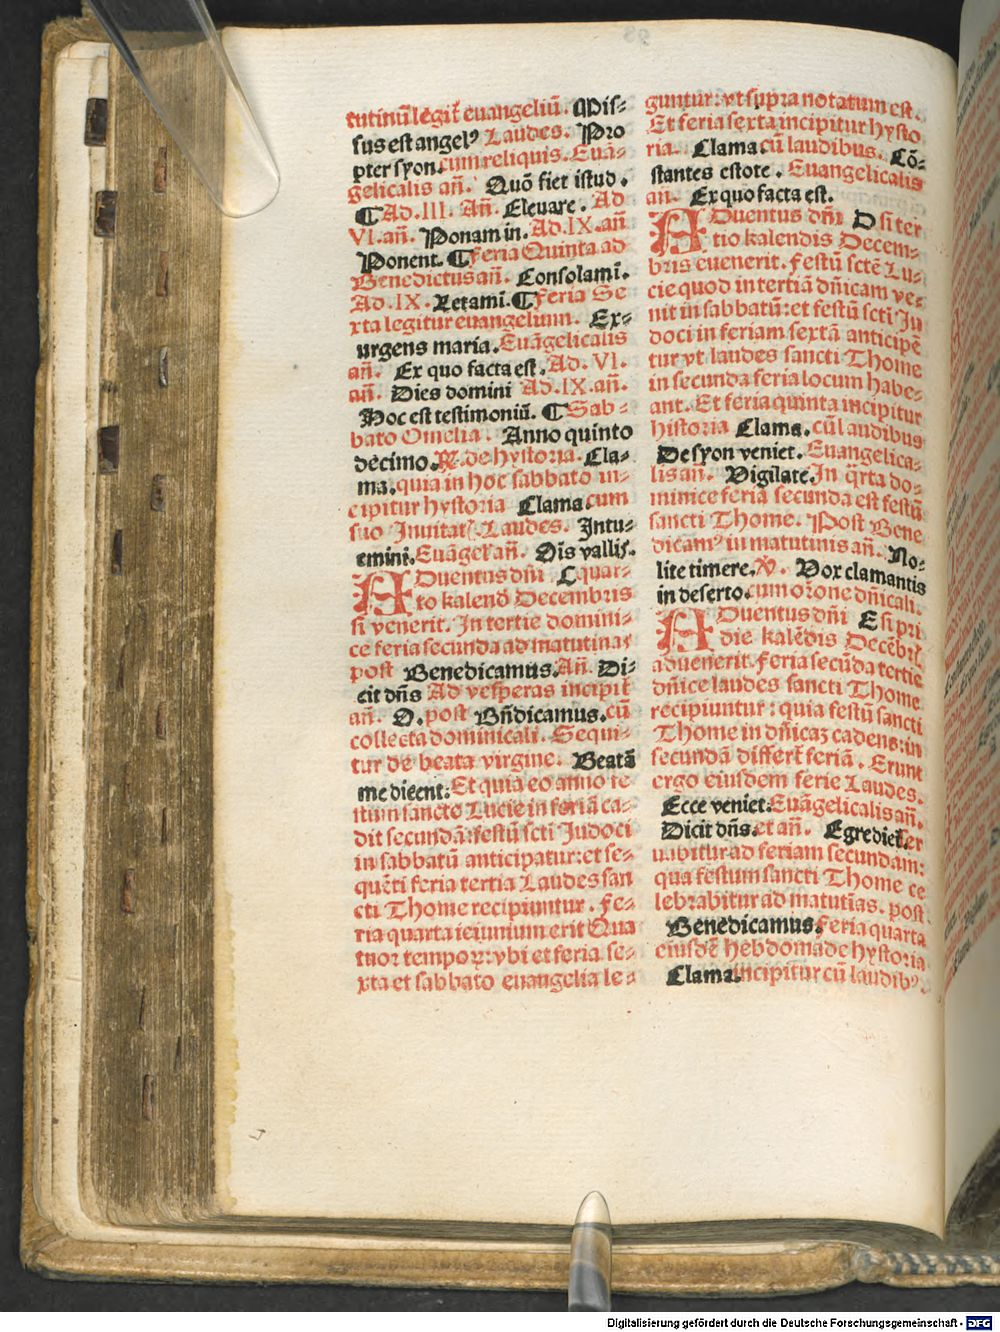 tutinū legit̄ euangeliū. Mis⸗
sus est angelꝰ Laudes. Pro
pter syon. cum reliquis. Euā⸗
gelicalis an̄. Quō fiet istud.
¶ Ad. III. An̄. Eleuare. Ad
VI. an̄. Ponam in. Ad. IX. an̄
Ponent. ¶ Feria Quinta ad
Benedictus an̄. Consolamī.
Ad. IX. Letamī. ¶ Feria Se
xta legitur euangelium. Ex⸗
urgens maria. Euāgelicalis
an̄. Ex quo facta est. Ad. VI.
an̄. Dies domini Ad. IX. an̄.
Hoc est testimoniū. ¶ Sab⸗
bato Omelia. Anno quinto
decimo. R̄. de hystoria. Cla⸗
ma. quia in hoc sabbato in⸗
cipitur hystoria Clama. cum
suo Inuitat̄. Laudes. Intu⸗
emini. Euāgel̄ an̄. Oīs vallis.
ADuentus dn̄i C quar⸗
to kalend̄ Decembris
si venerit. In tertie domini⸗
ce feria secunda ad matutinas
post Benedicamus. An̄. Di⸗
cit dn̄s Ad vesperas incipit̄
an̄. O. post Bn̄dicamus. cū
collecta dominicali. Sequi⸗
tur de beata virgine. Beatā
me dicent. Et quia eo anno fe
stum sancte Lucie in feriā ca⸗
dit secundā: festū scti Judoci
in sabbatū anticipatur: et se⸗
quēti feria tertia Laudes san
cti Thome recipiuntur. Fe⸗
ria quarta ieiunium erit Qua
tuor temporꝝ: vbi et feria se⸗
xta et sabbato euangelia le⸗
guntur: vt supra notatum est.
Et feria sexta incipitur hysto
ria. Clama cū laudibus. Cō⸗
stantes estote. Euangelicalis
an̄. Ex quo facta est.
ADuentus dn̄i D si ter
tio kalendis Decem⸗
bris euenerit. Festū sctē Lu⸗
cie quod in tertiā dn̄icam ve⸗
nit in sabbatū: et festū scti Ju
doci in feriam sextā anticipē
tur vt laudes sancti Thome
in secunda feria locum habe⸗
ant. Et feria quinta incipitur
historia Clama. cū laudibus
De syon veniet. Euangelica⸗
lis an̄. Vigilate. In q̄rta do⸗
minice feria secunda est festū
sancti Thome. Post Bene
dicamꝰ in matutinis an̄. No⸗
lite timere. V̄. Vox clamantis
in deserto. cum orōne dn̄icali.
ADuentus dn̄i E si pri
die kalēdis Decēbrꝭ
aduenerit. Feria secūda tertie
dn̄ice laudes sancti Thome
recipiuntur: quia festū sancti
Thome in dn̄icaꝫ cadens: in
secundā differt̄ feriā. Erunt
ergo eiusdem ferie Laudes.
Ecce veniet: Euāgelicalis an̄.
Dicit dn̄s. et an̄. Egrediet̄. er
uabitur ad feriam secundam:
qua festum sancti Thome ce
lebrabitur ad matutīas. post
Benedicamus. Feria quarta
eiusdē hebdomade hystoria
Clama. incipitur cū laudibꝰ.
Digitalisierung gefördert durch die Deutsche Forschungsgemeinschaft - DFG